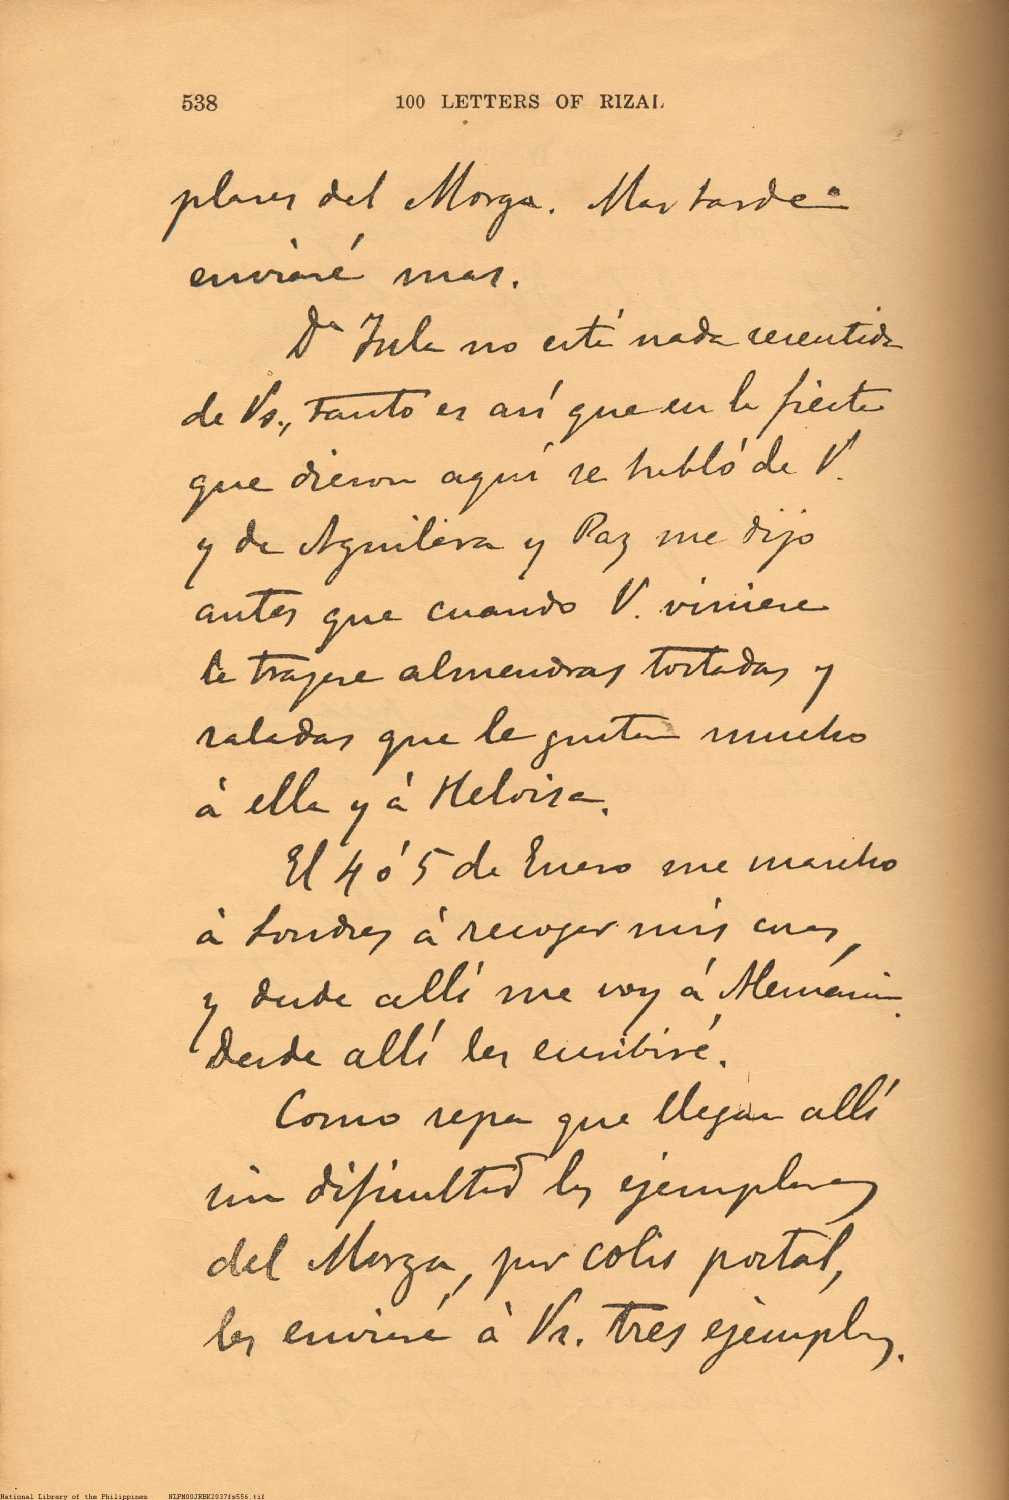 538 100 LETTERS OF RIZAL
plares del Morga. Mas tarde
enviaré mas.
Dª Tula no está nada resentida
de Vs., tanto es asi que en la fiesta
que dieron aquí se habló de V.
y de Aguilera y Paz me dijo
antes que cuando V. viniese
le trajese almendras tostadas y
saladas que le gustan mucho
á ella y á Heloisa.
El 4 ó 5 de Enero me marcho
á Londres á recoger mis cosas,
y desde allí me voy á Alemánia.
Desde allí les escribiré.
Como sepa que llegan allí
sin dificultad los ejemplares
del Morga, por colis postal,
les enviaré á Vs. tres ejempls.
National Library of the Philippines NLPM00JRBK2037fs556.tif